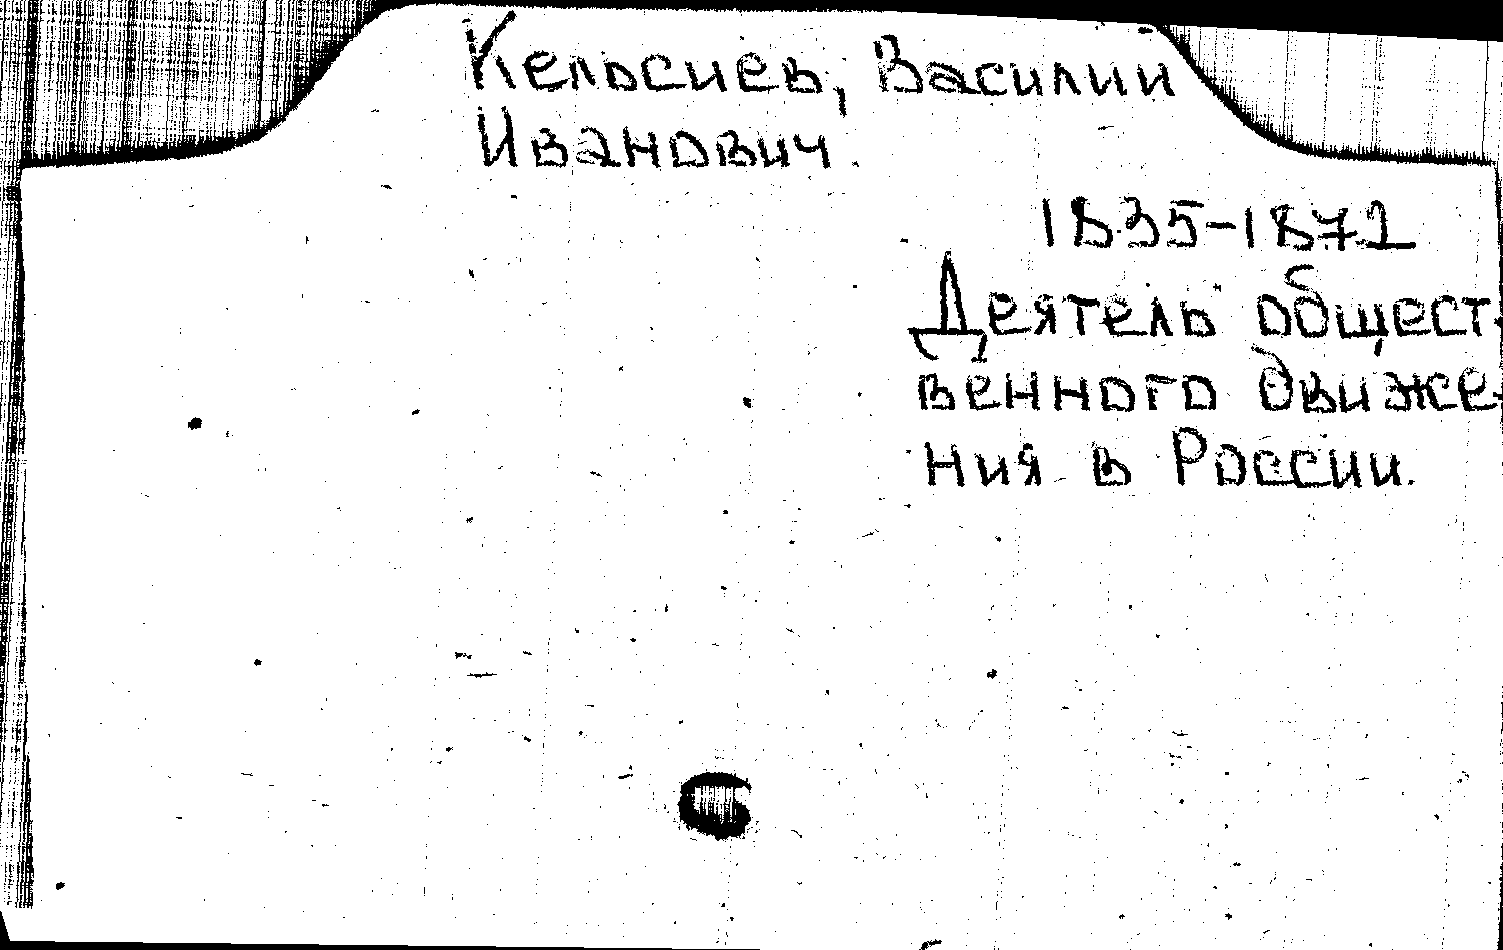 Кельсиев, Василии
Иванович.
1835-1872
Деятель общест-
венного движе-
ния в России.